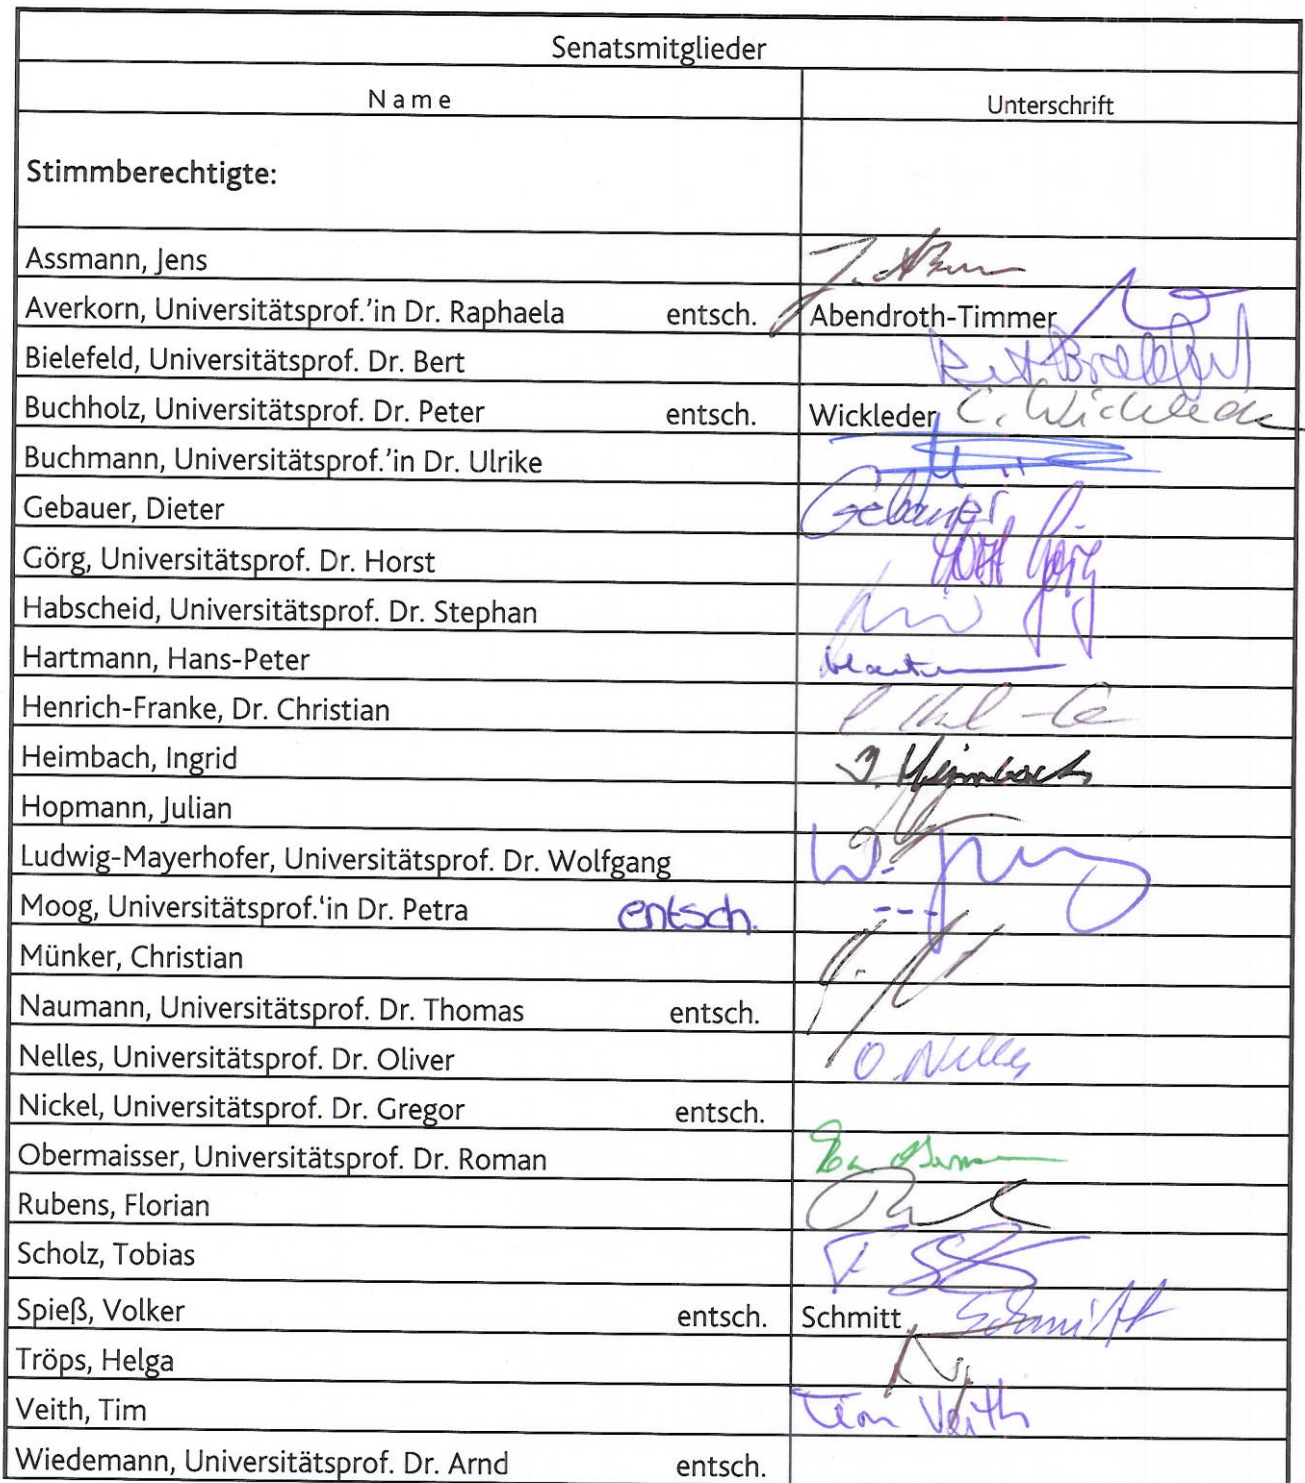 Senatsmitglieder
Name Unterschrift
Stimmberechtigte:
Assmann, Jens
Averkorn, Universitätsprof.'in Dr. Raphaela entsch. Abendroth-Timmer
Bielefeld, Universitätsprof. Dr. Bert
Buchholz, Universitätsprof. Dr. Peter entsch. Wickleder C. Wickleder
Buchmann, Universitätsprof.'in Dr. Ulrike
Gebauer, Dieter Gebauer
Görg, Universitätsprof. Dr. Horst Horst Görg
Habscheid, Universitätsprof. Dr. Stephan
Hartmann, Hans-Peter
Henrich-Franke, Dr. Christian
Heimbach, Ingrid I. Heimbach
Hopmann, Julian
Ludwig-Mayerhofer, Universitätsprof. Dr. Wolfgang
Moog, Universitätsprof.'in Dr. Petra entsch. ---
Münker, Christian
Naumann, Universitätsprof. Dr. Thomas entsch.
Nelles, Universitätsprof. Dr. Oliver O. Nelles
Nickel, Universitätsprof. Dr. Gregor entsch.
Obermaisser, Universitätsprof. Dr. Roman
Rubens, Florian
Scholz, Tobias
Spieß, Volker entsch. Schmitt Schmitt
Tröps, Helga
Veith, Tim Tim Veith
Wiedemann, Universitätsprof. Dr. Arnd entsch.